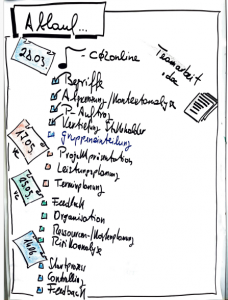 Ablauf...
28.03.
- C@online
Teamarbeit
.doc
Begriffe
Abgrenzung/Kontextanalyse
P-Auftrag
Vertiefung Stakeholder
Gruppeneinteilung
17.05.
Projektpräsentation
Leistungsplanung
Terminplanung
Feedback
Organisation
Ressourcen-/Kostenplanung
Risikoanalyse
Startprozess
Controlling
Feedback